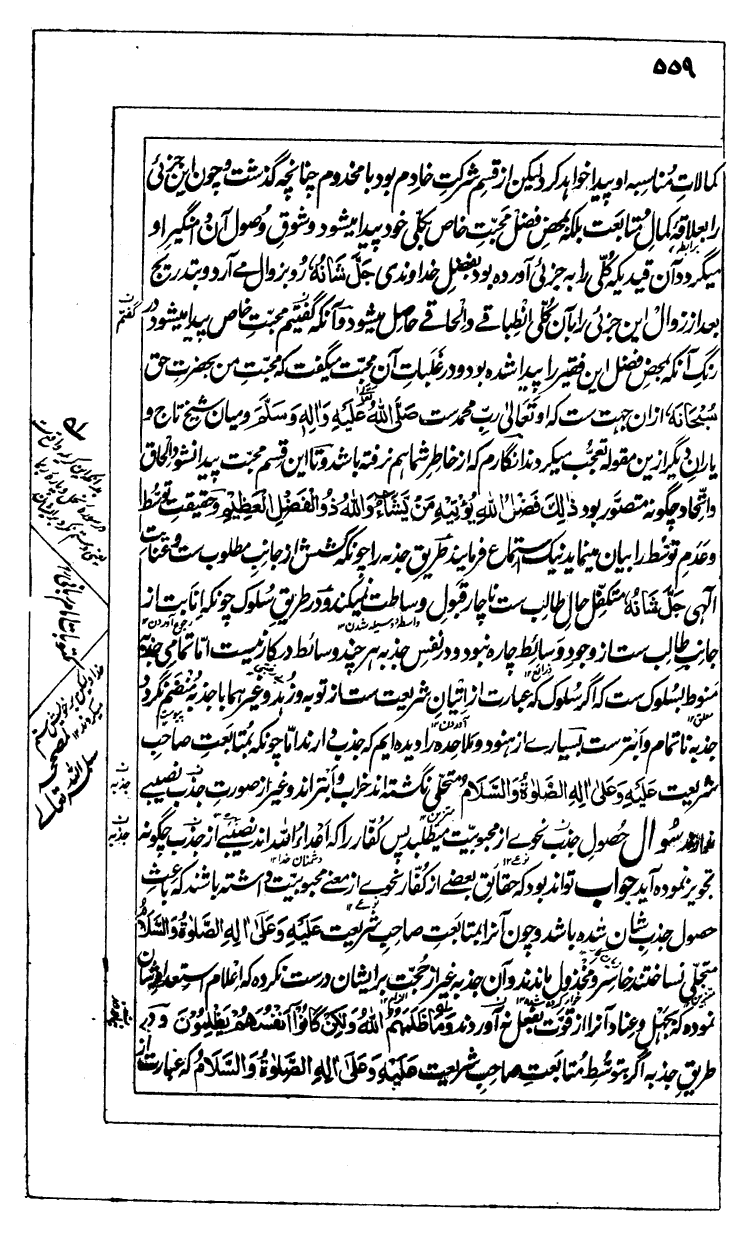 ۵۵۹
کمالاتِ مُناسبہ او پیدا خواہد کرد لیکن از قسمِ شرکتِ خادم بود با مخدوم چنانچہ گذشت و چون این جزئی
را بعلاقۂ کمالِ مُتابعت بلکہ بمحض فضل محبّتِ خاص بکلّی خود پیدا میشود و شوقِ وصول آن دامنگیرِ او
میگردد آن قیدیکہ کُلّی را بہ جزئی آوردہ بود بفضلِ خداوندی جَلَّ شَانُہٗ رُو بزوال مے آرد و بتدریج
بعد از زوال این جزئی را بآن کُلّی اِنطباقے و الحاقے حاصل میشود و آنکہ گفتیم محبتِ خاص پیدا میشود در
گفتم
رنگِ آنکہ بمحض فضل این فقیر را پیدا شدہ بود و در غلباتِ آن محبّت میگفت کہ محبّتِ من بحضرتِ حق
سُبْحَانَہٗ ازان جہت ست کہ او تَعَالیٰ ربِّ محمد ست صَلَّی اللہُ عَلَیْہِ وَاٰلِہٖ وَسَلَّمَ و میان شیخ تاج و
یارانِ دیگر ازین مقولہ تعجّب میکردند انگارم کہ از خاطرِ شما ہم نرفتہ باشد و تا این قسم محبت پیدا نشود الحاق
و اتّحاد چگونہ متصوّر بود ذٰلِکَ فَضْلُ اللہِ یُؤْتِیْہِ مَنْ یَّشَآءُ وَاللہُ ذُو الْفَضْلِ الْعَظِیْمِ و حقیقتِ توسّط
و عدمِ توسُّط را بیان مینماید نیک استماع فرمایند طریقِ جذبہ را چونکہ کشش از جانبِ مطلوب ست و عنایتِ
الٰہی جَلَّ شَانُہٗ متکفّلِ حالِ طالب ست ناچار قبولِ وساطت نمیکند و در طریقِ سُلوک چونکہ اِنابت از
واسطہ و وسیلہ شدن ۱۲
رجوع آوردن ۱۲
جانبِ طالب ست از وجودِ وسائط چارہ نبود و در نفسِ جذبہ ہر چند وسائط در کار نیست امّا تمامیِ جذبہ
ذرائع ۱۲
منوط بسُلوک ست کہ اگر سُلوک کہ عبارت از اِتیانِ شریعت ست از توبہ و زُہد و غیرہما با جذبہ مُنضم نگردد
آوردن ۱۲
جذبہ ناتمام و ابتر ست بسیارے از ہنود و ملاحدہ را دیدہ ایم کہ جذب دارند امّا چونکہ بمُتابعتِ صاحبِ
شریعت عَلَیْہِ وَعَلیٰ اٰلِہِ الصَّلٰوۃُ وَالسَّلَامُ متحلّی نگشتہ اند خراب و ابتراند و غیر از صورتِ جذب نصیبے
جذبہ
ندارند سُوال حُصولِ جذب نحوے از محبوبیّت میطلبد پس کُفّار را کہ اَعْداءُ اللہ اند نصیبے از جذب چگونہ
جذبہ
دشمنان خدا ۱۲
تجویز نمودہ آید جواب تواند بود کہ حقائق بعضے از کُفّار نحوے از معنے محبوبیّت داشتہ باشند کہ باعثِ
حصولِ جذبِ شان شدہ باشد و چون آنرا بمتابعتِ صاحبِ شریعت عَلَیْہِ وَعَلیٰ اٰلِہِ الصَّلٰوۃُ وَالسَّلَامُ
متحلّی نساختند خاسر و مخذول ماندند و آن جذبہ غیر از حُجّت بر ایشان درست نکردہ کہ اعلامِ استعدادِ ایشان
نمودہ کہ بجہل و عناد آنرا از قوّت بفعل نہ آوردند وَمَا ظَلَمَہُمُ اللہُ وَلٰکِنْ کَانُوْۤا اَنْفُسَہُمْ یَظْلِمُوْنَ و در
طریقِ جذبہ اگر بتوسُّطِ مُتابعتِ صاحبِ شریعت عَلَیْہِ وَعَلیٰ اٰلِہِ الصَّلٰوۃُ وَالسَّلَامُ کہ عبارت از
سلمہ اللہ تعالے